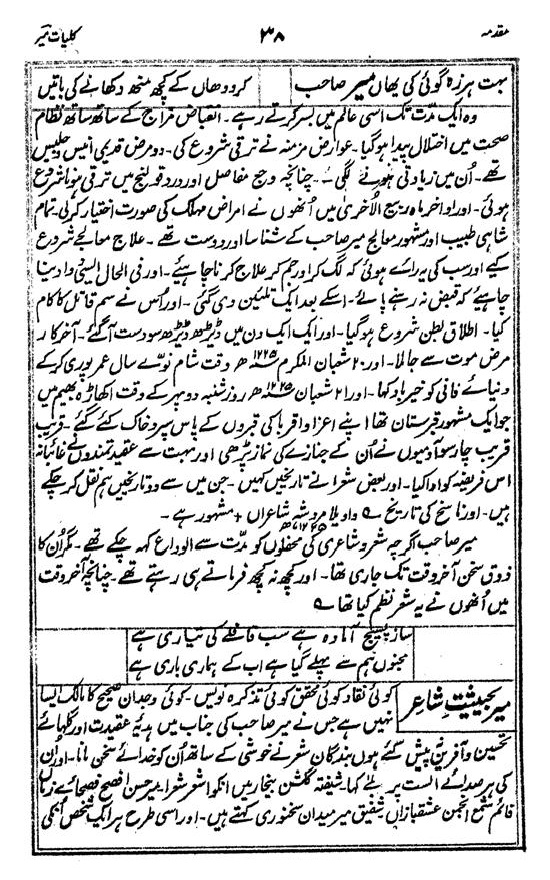 مقدمہ ۳۸ کلیات میر
بہت ہرزہ گوئی کی یھاں میر صاحب کرو وھاں کے کچھ منھ دکھانے کی باتیں
وہ ایک مدت تک اسی عالم میں بسر کرتے رہے ۔ انقباض مزاج کے ساتھ ساتھ نظام
صحت میں اختلال پیدا ہوگیا ۔ عوارض مزمنہ نے ترقی شروع کی ۔ دو مرض قدیمی انیس و جلیس
تھے ۔ اُن میں زیادتی ہونے لگی ۔ چنانچہ وجع مفاصل اور درد قولنج میں ترقی ہونا شروع
ہوئی ۔ اور اواخر ماہ ربیع الاُخریٰ میں اُنھوں نے امراض مہلک کی صورت اختیار کرلی ۔ تمام
شاہی طبیب اور مشہور معالج میر صاحب کے شناسا اور دوست تھے ۔ علاج معالجے شروع
کیے اور سب کی یہ رائے ہوئی کہ لگ کر اور جم کر علاج کرنا چاہیے ۔ اور فی الحال ایسی دوا دینا
چاہیے کہ قبض نہ رہنے پائے ۔ اسکے بعد ایک تلئین دی گئی ۔ اور اُس نے سم قاتل کا کام
کیا ۔ اطلاق بطن شروع ہوگیا ۔ اور ایک ایک دن میں ڈیڑھ ڈیڑھ سو دست آگئے ۔ آخر کار
مرض موت سے جا ملا ۔ اور ۲۰ شعبان المکرم ۱۲۲۵ھ وقت شام نوّے سال عمر پوری کرکے
دنیائے فانی کو خیرباد کہا ۔ اور ۲۱ شعبان ۱۲۲۵ھ روز شنبہ دوپہر کے وقت اکھاڑہ بھیم میں
جو ایک مشہور قبرستان تھا اپنے اعزا و اقربا کی قبروں کے پاس سپرد خاک کئے گئے ۔ قریب
قریب چار سو آدمیوں نے اُن کے جنازے کی نماز پڑھی اور بہت سے عقیدتمندوں نے غائبانہ
اس فریضہ کو ادا کیا ۔ اور بعض شعرا نے تاریخیں کہیں ۔ جن میں سے دو تاریخیں ہم نقل کر چکے
ہیں ۔ اور ناسخ کی تاریخ ؎ واویلا مرد شہ شاعراں + مشہور ہے ۔
۱۲۲۵ھ
میر صاحب اگرچہ شعر و شاعری کی محفلوں کو مدت سے الوداع کہہ چکے تھے ۔ مگر اُن کا
ذوق سخن آخر وقت تک جاری تھا ۔ اور کچھ نہ کچھ فرماتے ہی رہتے تھے ۔ چنانچہ آخر وقت
میں اُنھوں نے یہ شعر نظم کیا تھا ؎
ساز پسیج آمادہ ہے سب قافلے کی تیاری ہے
مجنوں ہم سے پہلے گیا ہے اب کے ہماری باری ہے
میر بحیثیت شاعر کوئی نقاد کوئی محقق کوئی تذکرہ نویس ۔ کوئی وجدان صحیح کا مالک ایسا
نہیں ہے جس نے میر صاحب کی جناب میں ہدیۂ عقیدت اور گلہائے
تحسین و آفریں پیش کئے ہوں بندگان شعر نے خوشی کے ساتھ اُن کو خدائے سخن مانا ۔ اور اُن
کی ہر صدائے الست پر بلےٰ کہا ۔ شیفتہ گلشن بیخار میں انکو اشعر شعرا ۔ میر حسن افصح فصحائے زماں
قائم شمع انجمن عشقبازاں شفیق میر میدان سخنوری کہتے ہیں ۔ اور اسی طرح ہر ایک شخص اُنکی